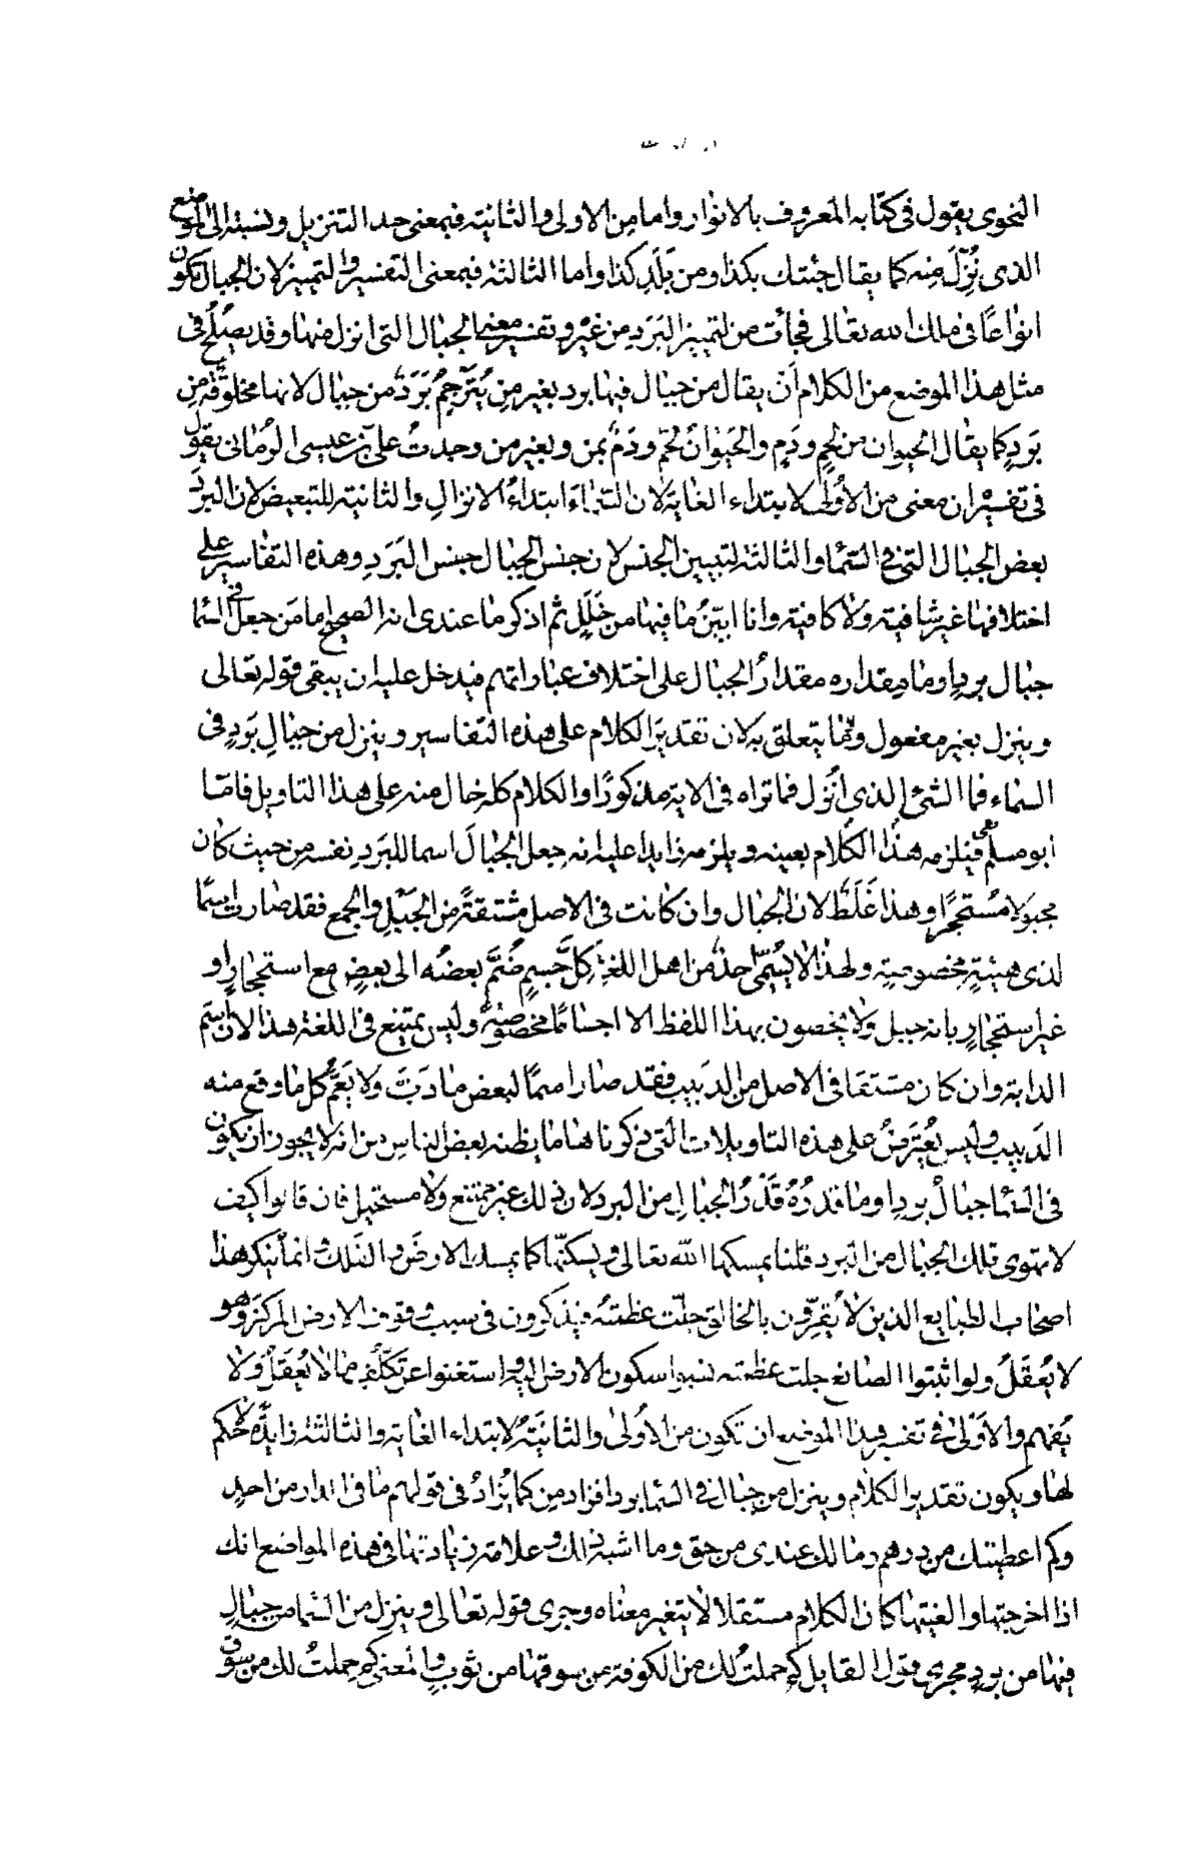 النحوى يقول فى كتابه المعروف بالانوار واما من الاولى والثانية فبمعنى حد التنزيل ونسبته الى الموضع
الذى نُزِّلَ منه كما يقال جئتك بكذا ومن بَلَدِ كذا واما الثالثة فبمعنى التفسير والتمييز لان الجبال تكون
انواعًا فى ملك الله تعالى فجاءت من لتمييز البَرَد من غيره وتفسير معنى الجبال التى انزل منها وقد يصلح فى
مثل هذا الموضع من الكلام أن يقال من جبال فيها برد بغير من يُترجِمُ بَرَدٌ من جبال لانها مخلوقة من
بَرَدٍ كما يقال الحيوان من لحمٍ ودَمٍ والحَيوانُ لحمٌ ودمٌ بمن وبغير من وجدتُ على بن عيسى الرُمانى يقول
فى تفسيره ان معنى من الأُولى لابتداء الغاية لان السَّماءَ ابتداءُ الانزالِ والثانية للتبعيض لان البرد
بعض الجبال التى فى السَّماء والثالثة لتبيين الجنس لان جنس الجبال جنس البَرَدِ وهذه التفاسير على
اختلافها غير شافية ولا كافية وانا ابيّنُ ما فيها من خَلَلٍ ثم اذكر ما عندى انه الصحيح اما مَن جعل فى السَّماء
جبال بردٍ او ما مقداره مقدارُ الجبال على اختلاف عباراتهم فيدخل عليه ان يبقى قوله تعالى
وينزل بغير مفعول ولا ما يتعلق به لان تقديرَ الكلام على هذه التفاسير وينزل من جبالِ بَرَدٍ فى
السَّماء فما الشئ الذى أُنزل فما تراه فى الاية مذكورًا والكلام كله خال منه على هذا التاويل فامّا
ابو مسلم فيلزمه هذا الكلام بعينه ويلزمه زايدا عليه انه جعل الجبالَ اسما للبَرَدِ نفسه من حيث كان
مجبولا مُستحجِرًا وهذا غَلَطٌ لان الجبال وان كانت فى الاصل مشتقةً من الجَبْلِ والجمع فقد صارت اسمًا
لذى هيئةٍ مخصوصةٍ ولهذا لا يُسَمِّى احدٌ من اهل اللغةِ كلَّ جسمٍ ضُمَّ بعضُه الى بعضٍ مع استحجارٍ او
غير استحجارٍ بانه جبل ولا يخصون بهذا اللفظ الا اجسامًا مخصوصةً وليس يمتنع فى اللغة هذا لان اسم
الدابة وان كان مشتقا فى الاصل من الدَبيب فقد صار اسمًا لبعض ما دَبَّ ولا يَعُمُّ كل ما وقع منه
الدَبيب وليس يُعتَرضُ على هذه التاويلات التى ذكرناها ما يظنه بعض الناس من انه لا يجوز ان يكون
فى السَّماء جبالُ بردٍ او ما قدرُهُ قَدْرُ الجبالِ من البرد لان ذلك غير ممتنع ولا مستحيل فان قالوا كيف
لا تهوى تلك الجبال من البرد قلنا يمسكها الله تعالى ويسكنها كما يمسك الارضَ والفَلك وانما ينكر هذا
اصحاب الطبايع الذين لا يُقِرّون بالخالق جلّت عظمتُه فيذكرون فى سبب وقوف الارض المركزَ وهو
لا يُعقَلُ ولو اثبتوا الصانع جلت عظمته نسبوا سكون الارض اليه واستغنوا عن تكلُّفِ ما لا يُعقَلُ ولا
يُفهم والأَوْلى فى تفسير هذا الموضع ان تكون من الأُولى والثانيَةُ لابتداء الغاية والثالثة زايدةً لا حكم
لها ويكون تقدير الكلام وينزل من جبال فى السَّماء بردا فزاد من كما يُزادُ فى قولهم ما فى الدار من احدٍ
وكم اعطيتك من درهم وما لك عندى من حق وما اشبه ذلك وعلامة زيادتها فى هذه المواضع انك
اذا اخرجتها والغيتها كان الكلام مستقلا لا يتغير معناه وجرى قوله تعالى وينزل من السَّماء من جبالٍ
فيها من بردٍ مجرى قول القايل كم حملتُ لك من الكوفة من سوقها من ثوب والمعنى كم حملتُ لك من سوق